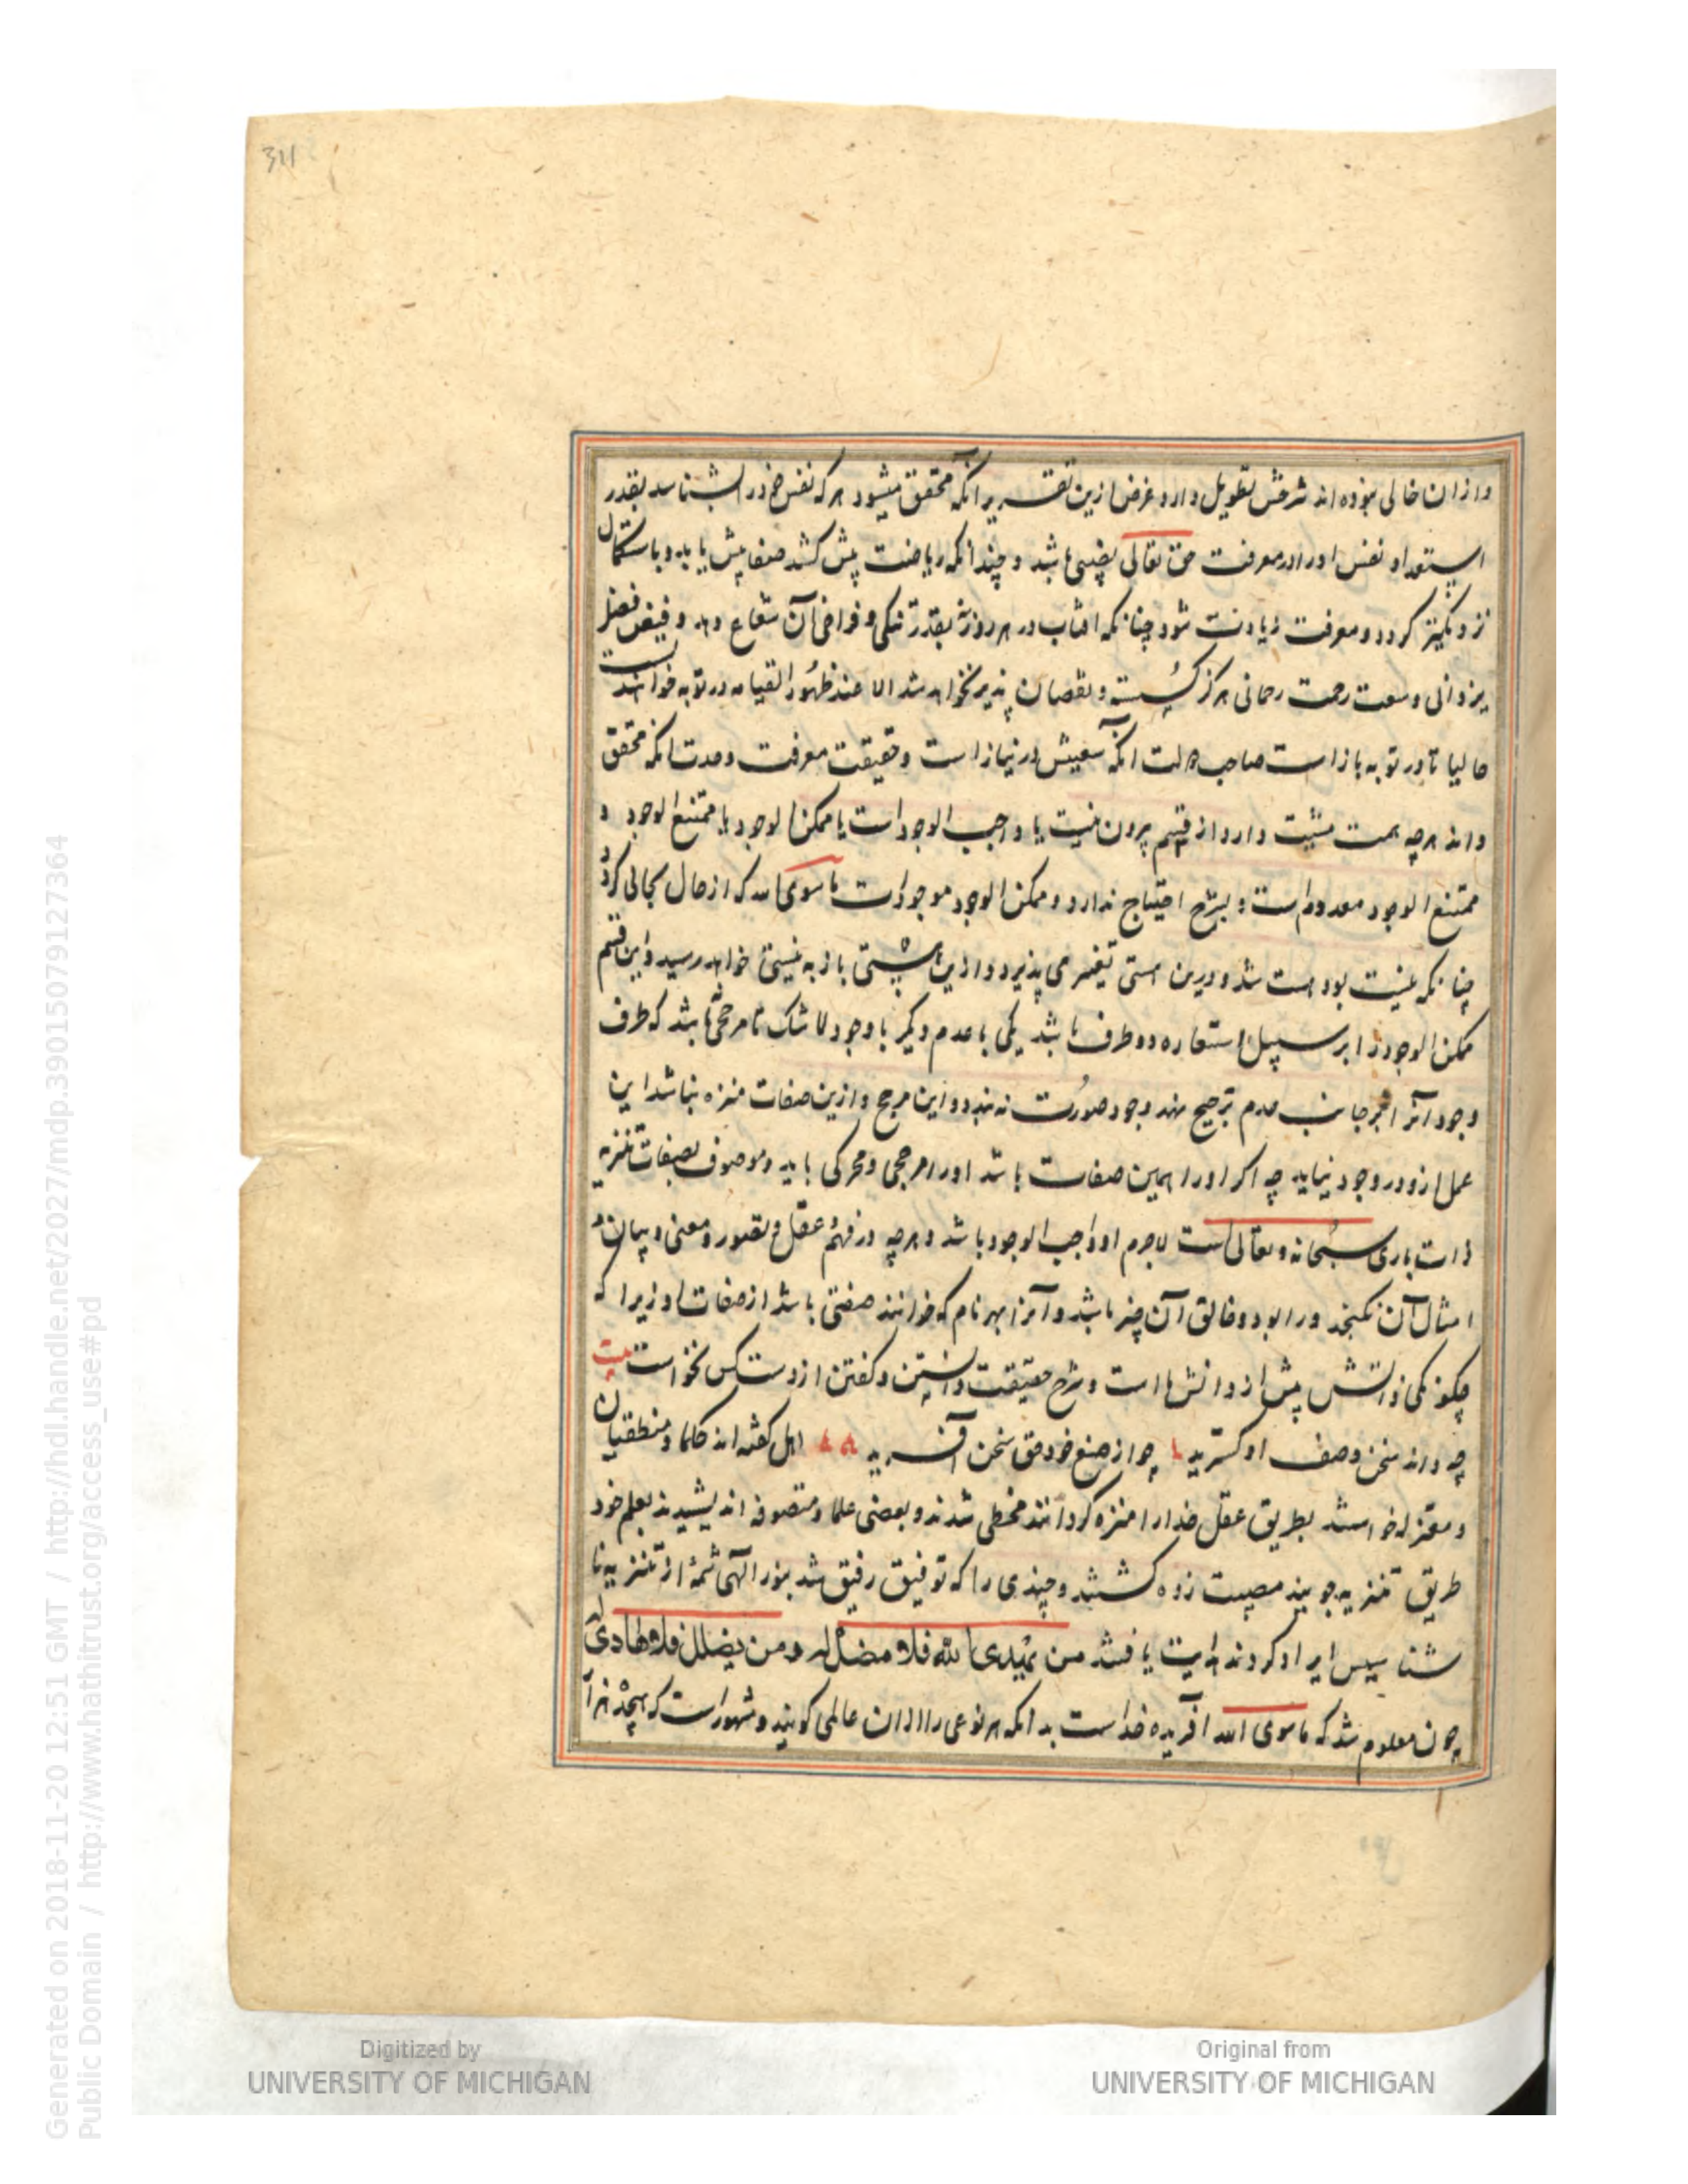 311
وازان خالی نبوده اند شرحش تطویل دارد غرض ازین تقریر انکه محقق میشود هر که نفس خود را بشناسد بقدر
استعداد نفس اورا در معرفت حق تعالی نصیبی باشد و چندانکه ریاضت پیش کشد صفا پیش یابد و باستکمال
نزدیکتر کردد و معرفت زیادت شود چنانکه افتاب در هر روزنه بقدر تنکی و فراخی آن شعاع دهد و فیض فضل
یزدانی وسعت رحمت رحمانی هرکز کسسته و نقصان پذیر نخواهد شد الا عند ظهور القیامه در توبه خواهند بست
حالیا تا در توبه بازاست صاحب دولت انکه سعیش در نیازاست و حقیقت معرفت وحدت انکه محقق
داند هرچه همت مشیت دارد از قسم بیرون نیست یا واجب الوجود است یا ممکن الوجود یا ممتنع الوجود و
ممتنع الوجود معدوم است و بشرح احتیاج ندارد و ممکن الوجود موجودات ماسوی الله که از حال بحالی کردد
چنانکه نیست بود هست شد و درین هستی تغیر می پذیرد و ازین هستی باز به نیستی خواهد رسید و این قسم
ممکن الوجود را بر سبیل استعاره دو طرف باشد یکی با عدم و دیکر با وجود لا شک تا مرجحی باشد که طرف
وجود آنرا بر جانب عدم ترجیح نهد وجود صورت نه بندد و این مرجح و ازین صفات منزه نباشد این
عمل ازو در وجود نیاید چه اکر اورا همین صفات باشد اورا مرجحی و محرکی باید و موصوف بصفات تنزیه
ذات باری سبحانه و تعالی است لاجرم او واجب الوجود باشد و هرچه در فهم و عقل و تصور و معنی و بیان و
امثال آن نکنجد ورا بود و خالق آن چیز باشد و آنرا بهر نام که خوانند صفتی باشد از صفات او زیرا که
چکونکی ذاتش پیش از دانشهااست و شرح حقیقت دانستن و کفتن از دست کس نخواست بیت
چه داند سخن وصف او کسترید چو از صنع خود حق سخن آفرید اهل کفته اند حکما و منطقیان
و معتزله خواستند بطریق عقل خدارا منزه کردانند مخطی شدند و بعضی علما و متصوفه اندیشیدند بعلم خود
طریق تنزیه جویند مصیبت زده کشتند و چندی را که توفیق رفیق شد بنور الهی شمهٔ از تنزیه نا
شناسیس ایراد کردند هدایت یافتند من یهدی الله فلا مضل له و من یضلل فلا هادی له
چون معلوم شد که ماسوی الله افریده خداست بدانکه هر نوعی را ازان عالمی کویند و مشهوراست که هیجده هزار
Digitized by
UNIVERSITY OF MICHIGAN
Original from
UNIVERSITY OF MICHIGAN
Generated on 2018-11-20 12:51 GMT / http://hdl.handle.net/2027/mdp.39015079127364
Public Domain / http://www.hathitrust.org/access_use#pd